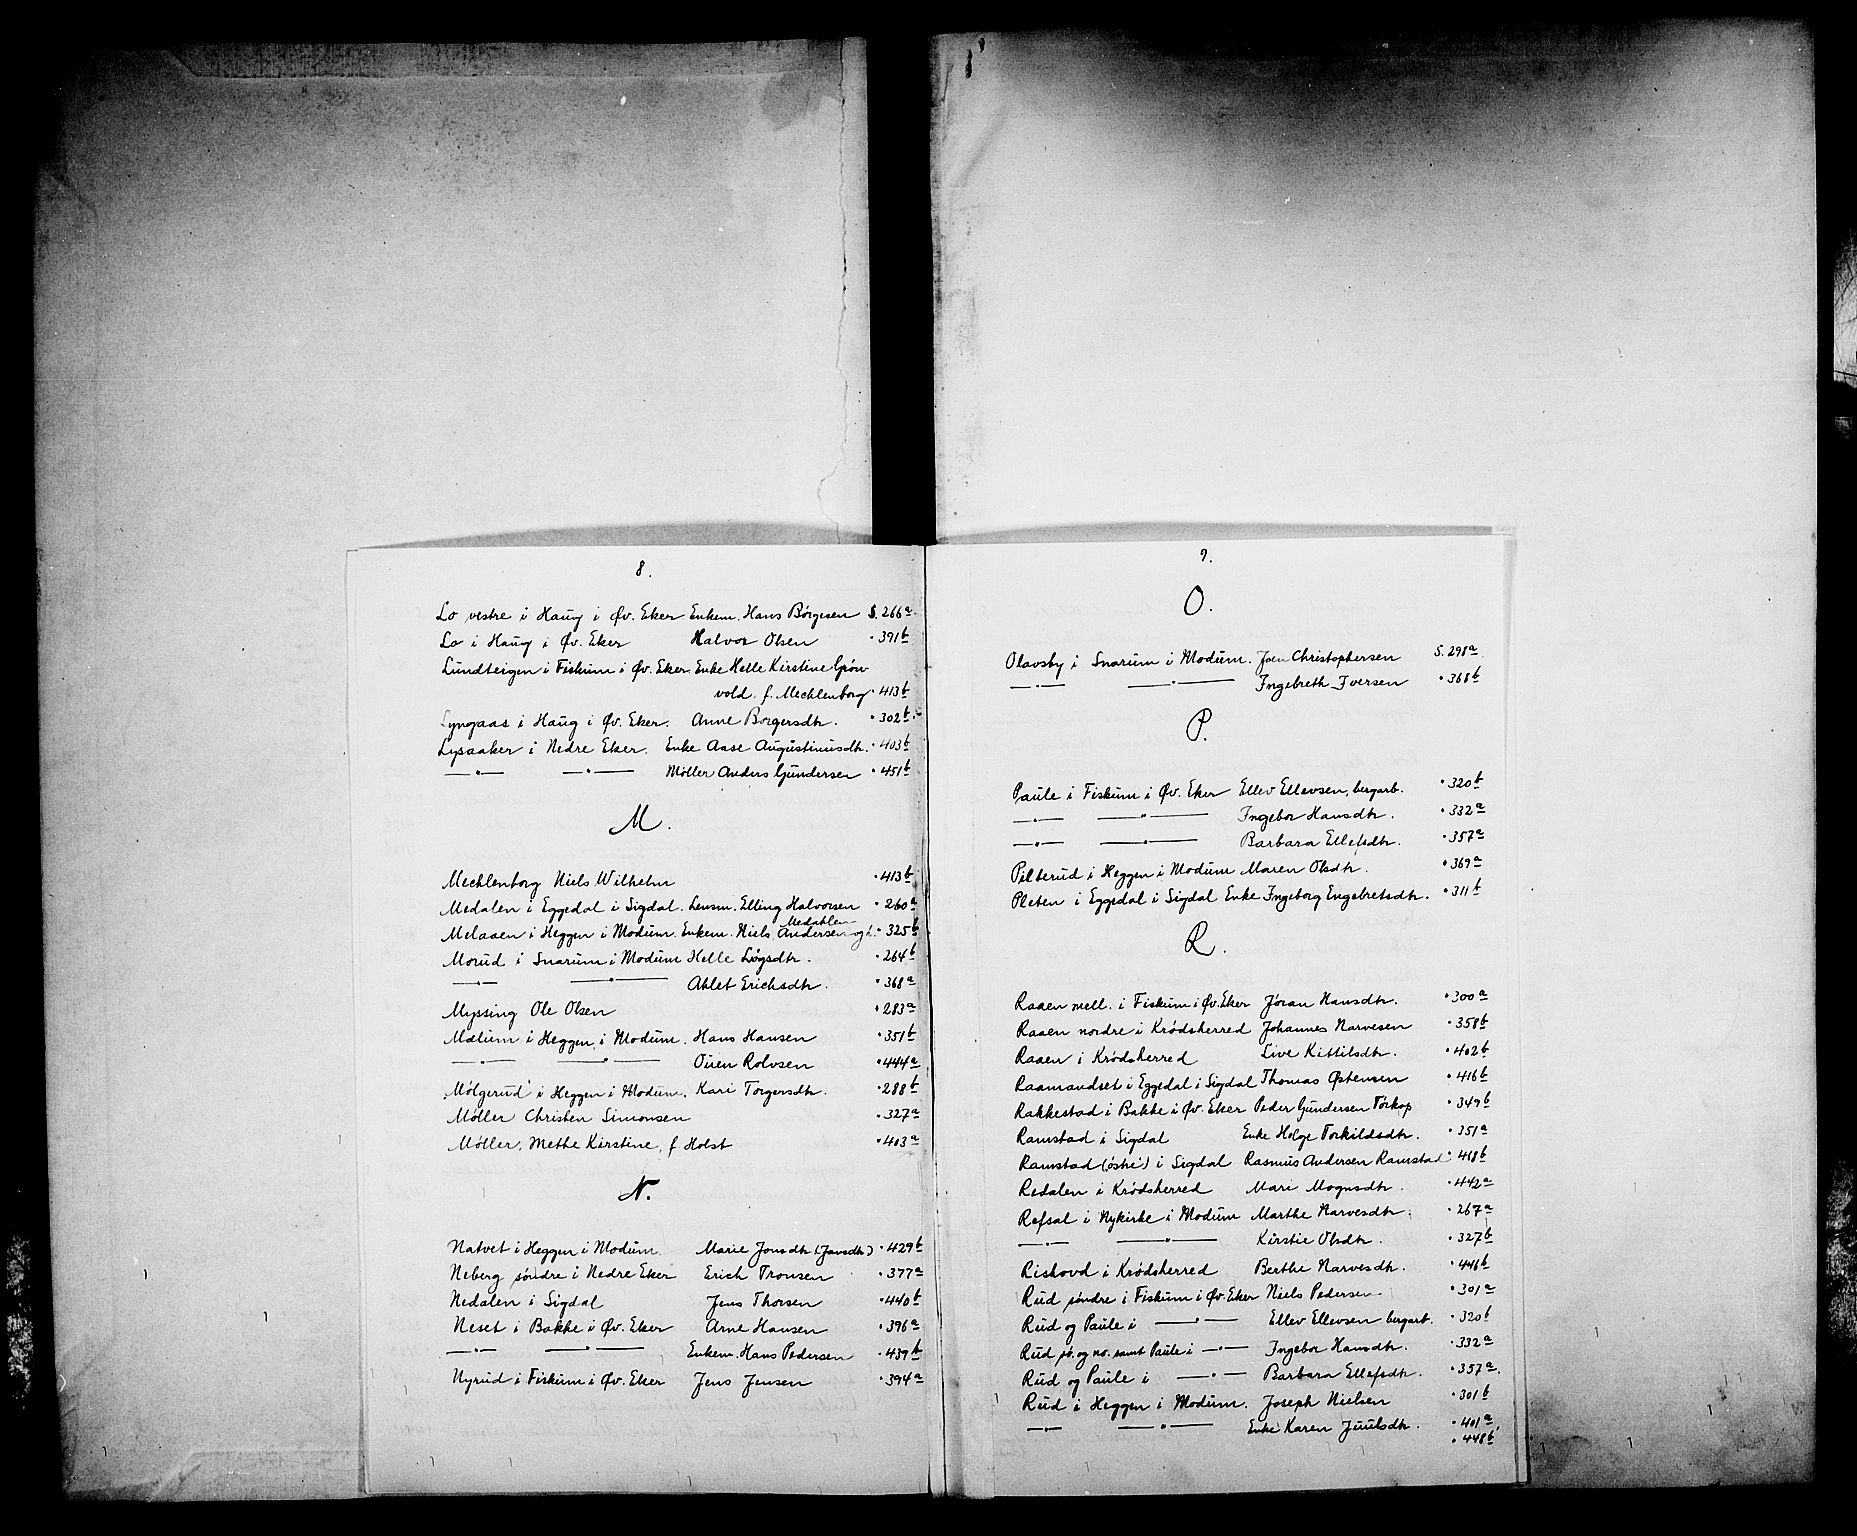 8.
Lo vestre i Haug i Øv. Eker Enkem. Hans Børgesen S. 266a.
Lo i Haug i Øv. Eker Halvor Olsen " 391b
Lundteigen i Fiskum i Øv. Eker Enke Helle Kirstine Grön
vold f. Mechlenborg " 413b
Lyngaas i Haug i Øv. Eker. Anne Borgersdtr. " 302b.
Lysaaker i Nedre Eker. Enke Aase Augustinusdtr. " 403b
—"— —"— Møller Anders Gundersen " 451b
M.
Mechlenborg Niels Wilhelm " 413b
Medalen i Eggedal i Sigdal. Lensm. Elling Halvorsen " 260a
Medahlen
Melaaen i Heggen i Modum. Enkem. Niels Andersen og " 325b
Morud i Snarum i Modum Helle " 264b
—"— —"— Ahlet Erichsdtr. " 368a
Myssing Ole Olsen " 283a
Mælum i Heggen i Modum. Hans Hansen " 351b
—"— —"— Ouen Rolvsen " 444a
Mølgerud i Heggen i Modum. Kari Torgersdtr. " 288b
Møller Christen Simonsen " 327a
Møller, Methe Kirstine, f Holst " 403a
N.
Natvet i Heggen i Modum. Marie Jonsdtr (Jansdtr) " 429b
Neberg søndre i Nedre Eker Erich Tronsen " 377a
Nedalen i Sigdal Jens Thorsen " 440b
Neset i Bakke i Øv. Eker Arne Hansen " 396a
—"— —"— Enkem. Hans Pedersen " 439b
Nyrud i Fiskum i Øv. Eker Jens Jensen " 394a
9.
O.
Olavsby i Snarum i Modum. Joen Christophersen S. 298a
—"— —"— Ingebreth Iversen " 368b
P.
Paule i Fiskum i Øv. Eker Ellev Ellevsen, bergarb. " 320b
—"— —"— Ingebor Hansdtr. " 332a
—"— —"— Barbara Ellefsdtr. " 357a
Pilterud i Heggen i Modum Maren Olsdtr. " 369a
Pleten i Eggedal i Sigdal Enke Ingeborg Engebretsdtr. " 311b
R.
Raaen mell. i Fiskum i Øv. Eker Jöran Hansdtr. " 300a
Raaen nordre i Krødsherred Johannes Narvesen " 358b
Raaen i Krødsherred Live Kittilsdtr. " 402b
Raamandset i Eggedal i Sigdal Thomas Østensen " 416b
Rakkestad i Bakke i Øv. Eker Peder Gundersen Torkop " 349b
Ramstad i Sigdal Enke Helge Torkildsdtr. " 351a
Ramstad (østre) i Sigdal Rasmus Andersen Ramstad " 418b
Redalen i Krødsherred Mari Mognsdtr. " 442a
Refsal i Nykirke i Modum Marthe Narvesdtr. " 267a
—"— —"— Kirstie Olsdtr. " 327b
Rishovd i Krødsherred Berthe Narvesdtr. " 446b
Rud søndre i Fiskum i Øv. Eker Niels Pedersen " 301a
Rud og Paule i —"— Ellev Ellevsen bergarb. " 320b
Rud sø. og no. samt Paule i —"— Ingebor Hansdtr. " 332a
Rud og Paule i —"— Barbara Ellefsdtr. " 357a.
Rud i Heggen i Modum. Joseph Nielsen " 301b
—"— —"— Enke Karen Juulsdtr. " 401a
" 448b